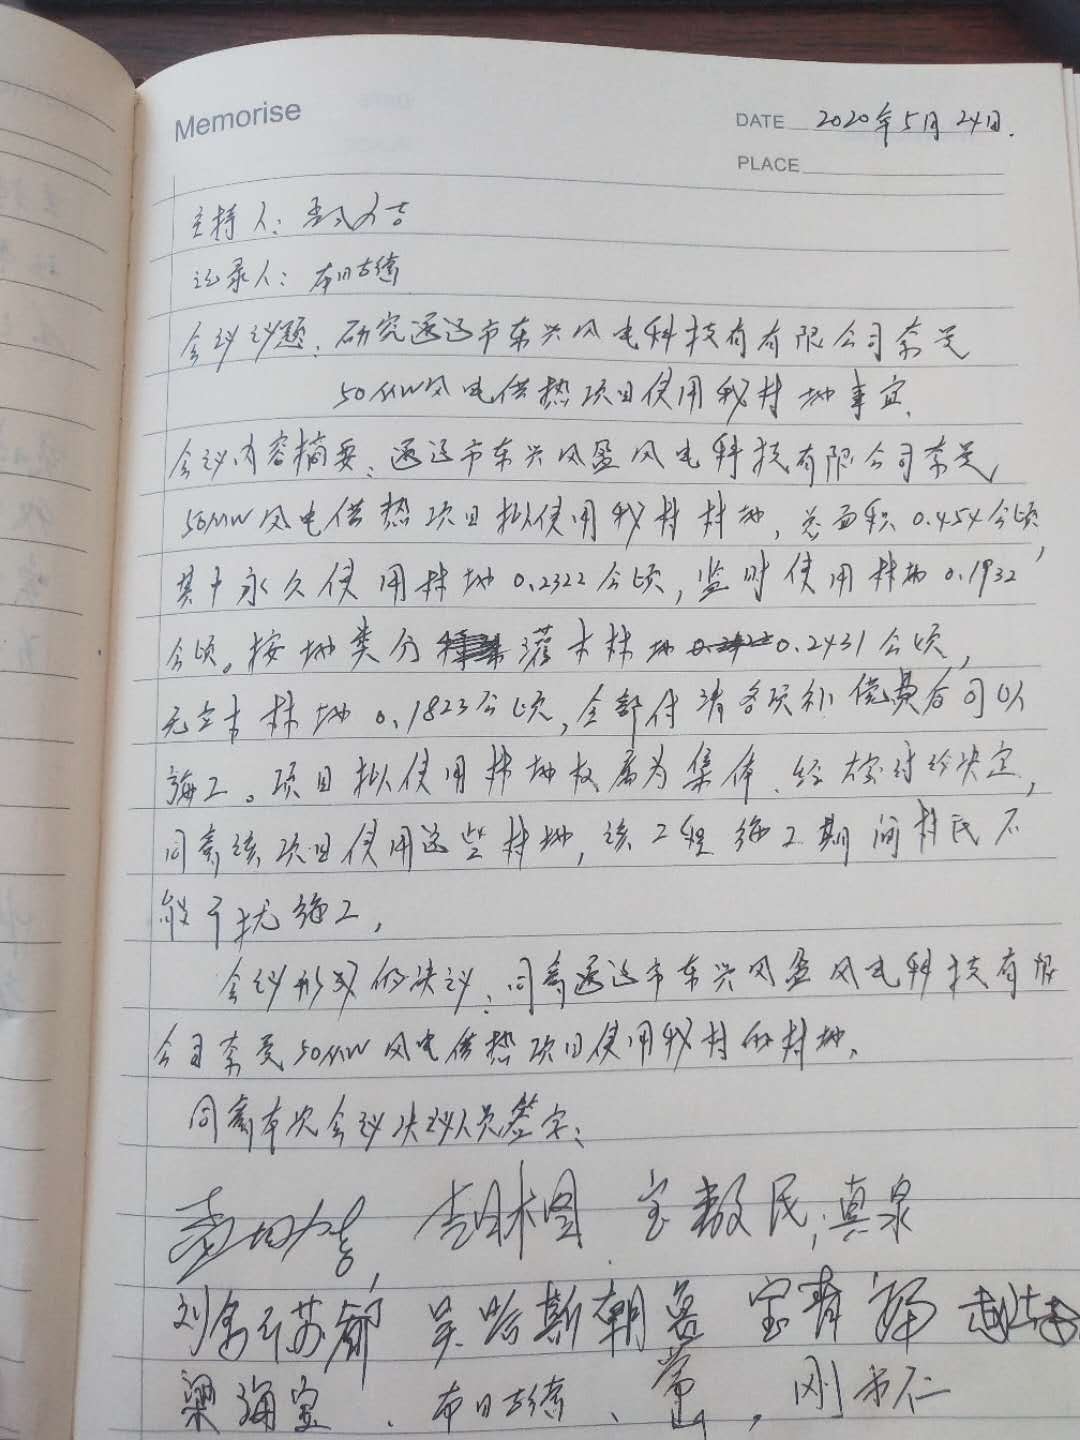 Memorise
DATE 2020年5月24日.
PLACE
主持人:
记录人: 布日古德
会议议题: 研究通辽市东兴风电科技有有限公司奈曼
50MW风电供热项目使用我村地事宜.
会议内容摘要: 通辽市东兴风盈风电科技有限公司奈曼
50MW风电供热项目拟使用我村林地, 总面积0.454公顷,
其中永久使用林地0.2322公顷, 监时使用林地0.1932
公顷。按地类分 灌木林地 0.2431公顷,
无立木林地0.1823公顷, 全部付清各项补偿费后可以
施工。项目拟使用林地权属为集体. 经大会讨论决定,
同意该项目使用这些林地, 该工程施工期间村民不
能干扰施工,
会议形成的决议: 同意通辽市东兴风盈风电科技有限
公司奈曼50MW风电供热项目使用我村的林地.
同意本次会议决议人员签字:
宝敖民, 真泉
苏都 吴哈斯朝鲁 宝青
梁海宝. 布日古德、 , 刚